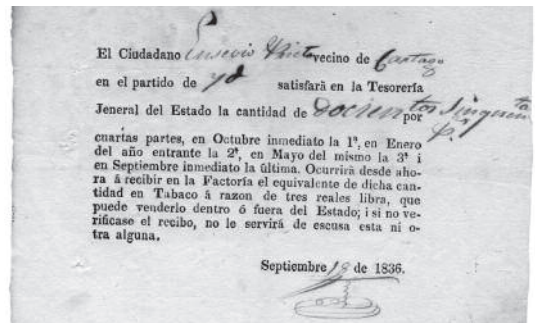 El Ciudadano Eusevio Prieto vecino de Cartago
en el partido de yd satisfará en la Tesorería
Jeneral del Estado la cantidad de docientos sinquenta p.s por
cuartas partes, en Octubre inmediato la 1ª, en Enero
del año entrante la 2ª, en Mayo del mismo la 3ª i
en Septiembre inmediato la última. Ocurrirá desde aho-
ra á recibir en la Factoría el equivalente de dicha can-
tidad en Tabaco á razon de tres reales libra, que
puede venderlo dentro ó fuera del Estado; i si no ve-
rificase el recibo, no le servirá de escusa esta ni o-
tra alguna.
Septiembre 18 de 1836.